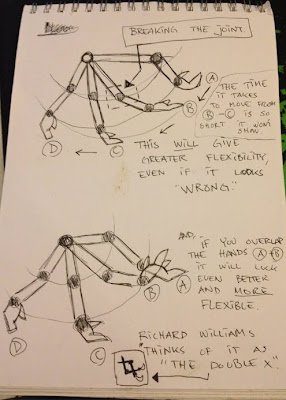 BREAKING THE JOINT.
A
THE TIME
IT TAKES
TO MOVE FROM
B - C IS SO
SHORT IT WON'T
SHOW
B
C
D
THIS WILL GIVE
GREATER FLEXIBILITY,
EVEN IF IT LOOKS
"WRONG."
AND, IF YOU OVERLAP
THE HANDS A + B
IT WILL LOOK
EVEN BETTER
AND MORE
FLEXIBLE.
A
B
C
D
RICHARD WILLIAMS
THINKS OF IT AS
"THE DOUBLE X".